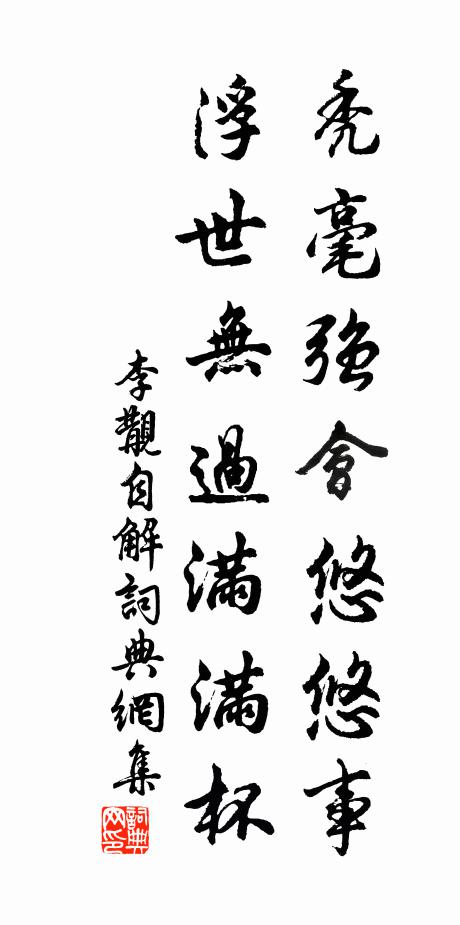 禿毫強會悠悠事
浮世無過滿滿杯
李觀自解詞典網集
詞典網印